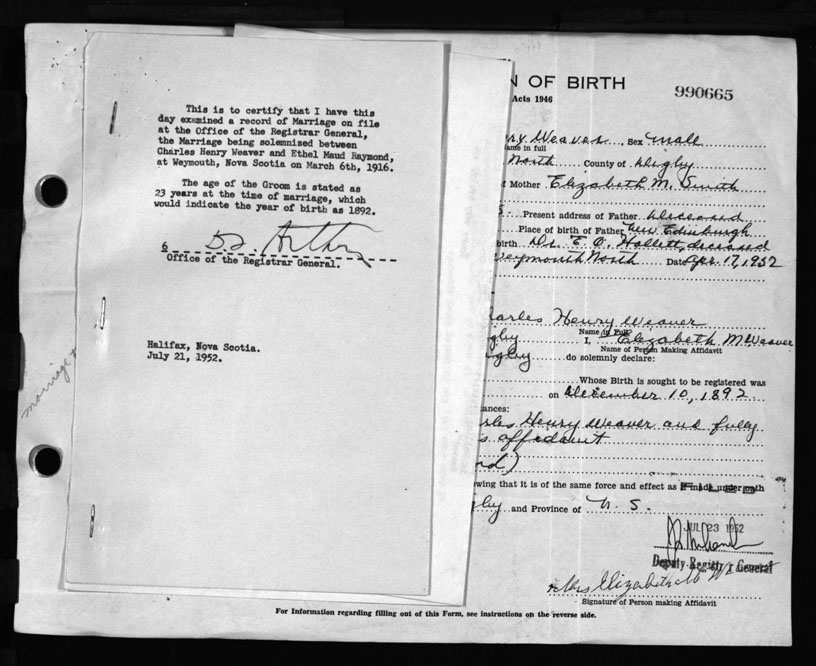 This is to certify that I have this
day examined a record of Marriage on file
at the Office of the Registrar General,
the Marriage being solemnised between
Charles Henry Weaver and Ethel Maud Raymond,
at Weymouth, Nova Scotia on March 6th, 1916.
The age of the Groom is stated as
23 years at the time of marriage, which
would indicate the year of birth as 1892.
6
Office of the Registrar General.
Halifax, Nova Scotia.
July 21, 1952.
marriage
N OF BIRTH
990665
Acts 1946
ry Weaver, Sex male
ame in full
North County of Digby
f Mother Elizabeth M. Smith
s. Present address of Father deceased
Place of birth of Father New Edinburgh
birth Dr. E. O. Hallett, deceased
eymouth North Date Apr. 17, 1952
harles Henry Weaver
Name in Full
gby I, Elizabeth M Weaver
Name of Person Making Affidavit
igby do solemnly declare:
Whose Birth is sought to be registered was
on December 10, 1892
ances:
rles Henry Weaver and fully
s affidavit
nd)
wing that it is of the same force and effect as if made under oath
gby and Province of N. S.
JUL 23 1952
Deputy Registrar General
Mrs Elizabeth M W
Signature of Person making Affidavit
For Information regarding filling out of this Form, see instructions on the reverse side.